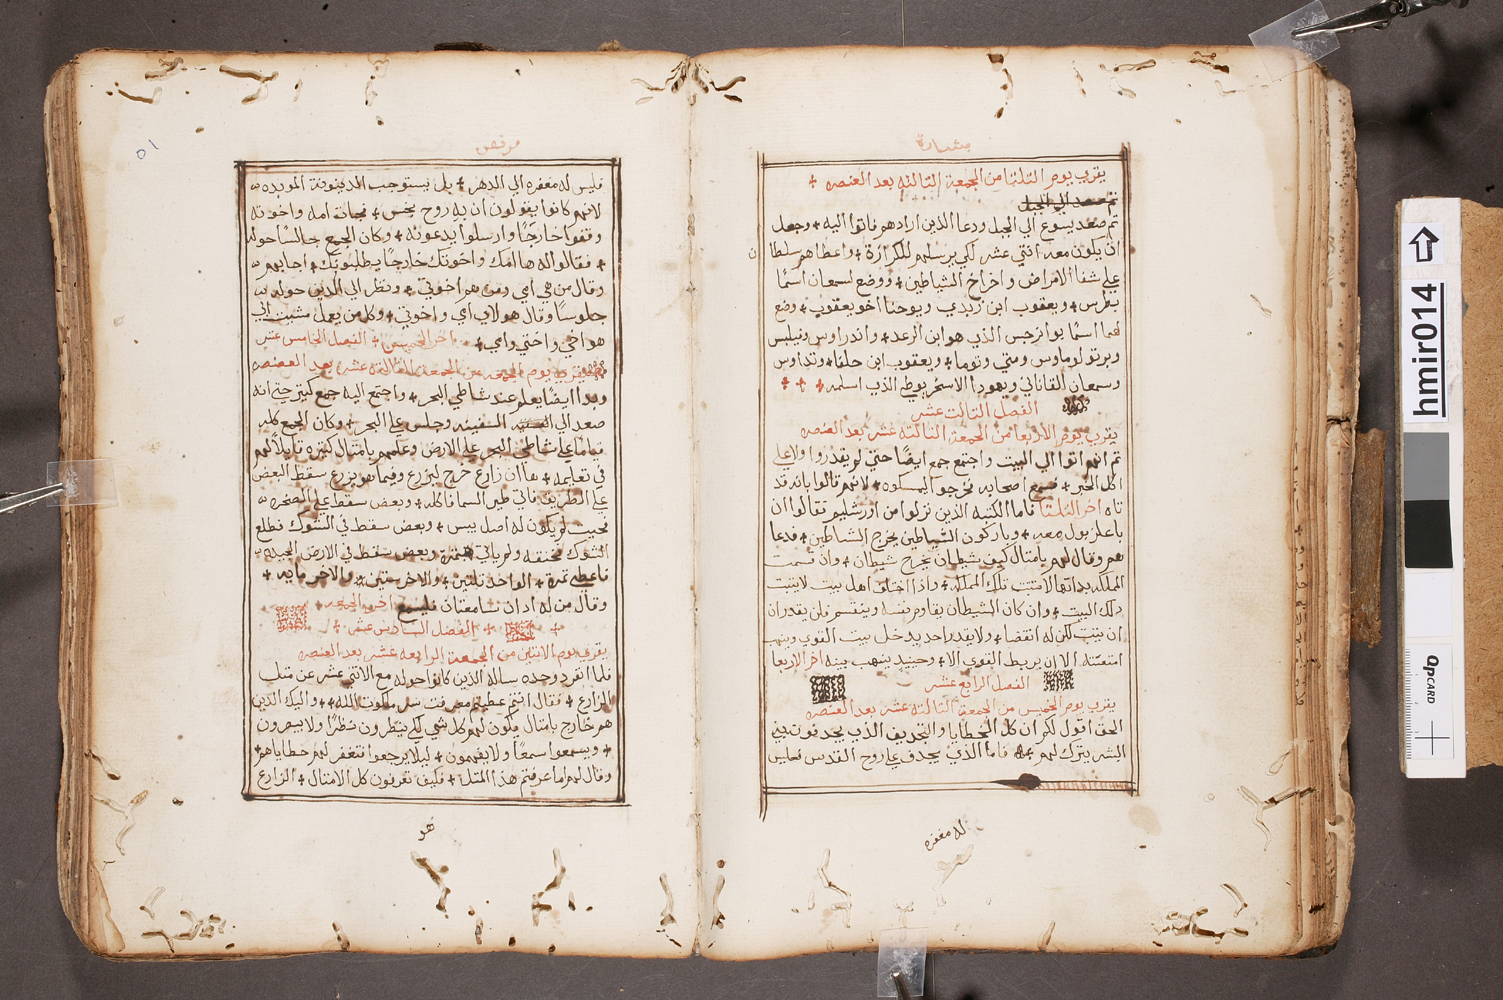 بشارة
يقرب يوم الثلثا من الجمعة الثالثه بعد العنصره +
ثم صعد الي الجبل
ثم صعد يسوع الي الجبل ودعا الذين ارادهم فاتوا اليه + وجعل
ان يكون معه اثني عشر لكي يرسلهم للكرازة + واعطاهم سلطا
ن
علي شفا الامراض واخراج الشياطين + ووضع لسمعان اسمًا
بطرس + ويعقوب ابن زبدي ويوحنا اخو يعقوب + وضع
لهما اسمًا بوانرجس الذي هو ابن الرعد + واندراوس وفيلبس
وبرتولوماوس ومتي وتوما + ويعقوب ابن حلفا + وتداوس
وسمعان القاناني ويهودا الاسخريوطي الذي اسلمه + + +
الفصل الثالث عشر
يقرب يوم الاربعا من الجمعة الثالثة عشر بعد العنصره
ثم انهم اتوا الي البيت واجتمع جمع ايضًا حتي لم يقدروا ولا علي
اكل الخبز + فسمع اصحابه فخرجوا ليمسكوه + لانهم قالوا بانه قد
تاه اخر الثلثا فاما الكتبه الذين نزلوا من اورشليم فقالوا ان
باعلزبول معه + وباركون الشياطين يخرج الشياطين + فدعا
هم وقال لهم بامثال كيف شيطان يخرج شيطان + وان قسمت
المملكه بذاتها لا تثبت تلك المملكه + واذا اختلف اهل بيت لا يثبت
ذلك البيت + وان كان الشيطان يقاوم نفسه وينقسم فلن يقدر ان
ان يثبت لكن له انقضا + ولا يقدر احد يدخل بيت القوي وينهب
امتعته الا ان يربط القوي الا + وحينيذ ينهب بيته اخر الاربعا
الفصل الرابع عشر
يقرب يوم الخميس من الجمعة الثالثة عشر بعد العنصره
الحق اقول لكم ان كل الخطايا والتجديف الذي يجدفون بني
البشر يترك لهم + فاما الذي يجدف علي روح القدس فليس
له مغفره
مرقص
٥١
فليس له مغفره الي الدهر + بل يستوجب الدينونة الموبده
لانهم كانوا يقولون ان به روح نجس + فجات امه واخوته
وقفوا خارجًا وارسلوا يدعونه + وكان الجمع جالسًا حوله
+ فقالوا له ها امك واخوتك خارجًا يطلبونك + اجابهم
وقال من هي امي ومن هم اخوتي + ونظر الي الذين حوله
جلوسًا وقال هولاي امي واخوتي + وكل من يعمل مشيت الي
هو اخي واختي وامي + اخر الخميس + الفصل الخامس عشر
يقرب يوم الجمعه من الجمعة الثالثة عشر بعد العنصره
وبدا ايضًا يعلم عند شاطي البحر + واجتمع اليه جمع كثير حتي انه
صعد الي السفينه السفينه وجلس علي البحر + وكان الجمع كله
قيامًا علي شاطي البحر علي الارض وعلمهم بامثال كثيرة قايلًا لهم
في تعليمه + ها ان زارع خرج ليزرع وفيما هو يزرع سقط البعض
علي الطريق فاتي طير السما فاكله + وبعض سقط علي الصخره
فحيث لم يكون له اصل يبس + وبعض سقط في الشوك فطلع
الشوك فخنقه ولم ياتي بثمرة وبعض سقط في الارض الجيده
فاعطي ثمرة + الواحد ثلثين + والاخر ستين + والاخر مايه +
وقال من له اذان سامعتان فليسمع اخر الجمعه +
+ الفصل السادس عشر +
يقرب يوم الاثنين من الجمعة الرابعة عشر بعد العنصره
فلما انفرد وحده ساله الذين كانوا حوله مع الاثني عشر عن مثل
الزارع + فقال انتم عطيتم معرفت سر ملكوت الله + واليك الذين
هم خارج بامثال يكون لهم كل شي لكي ينظرون نظرًا ولا يبصرون
+ ويسمعوا سمعًا ولا يفهمون + ليلا يرجعوا فتغفر لهم خطاياهم +
وقال لهم اما عرفتم هذا المثل + فكيف تعرفون كل الامثال + الزارع
هو
hmir014
QPCARD